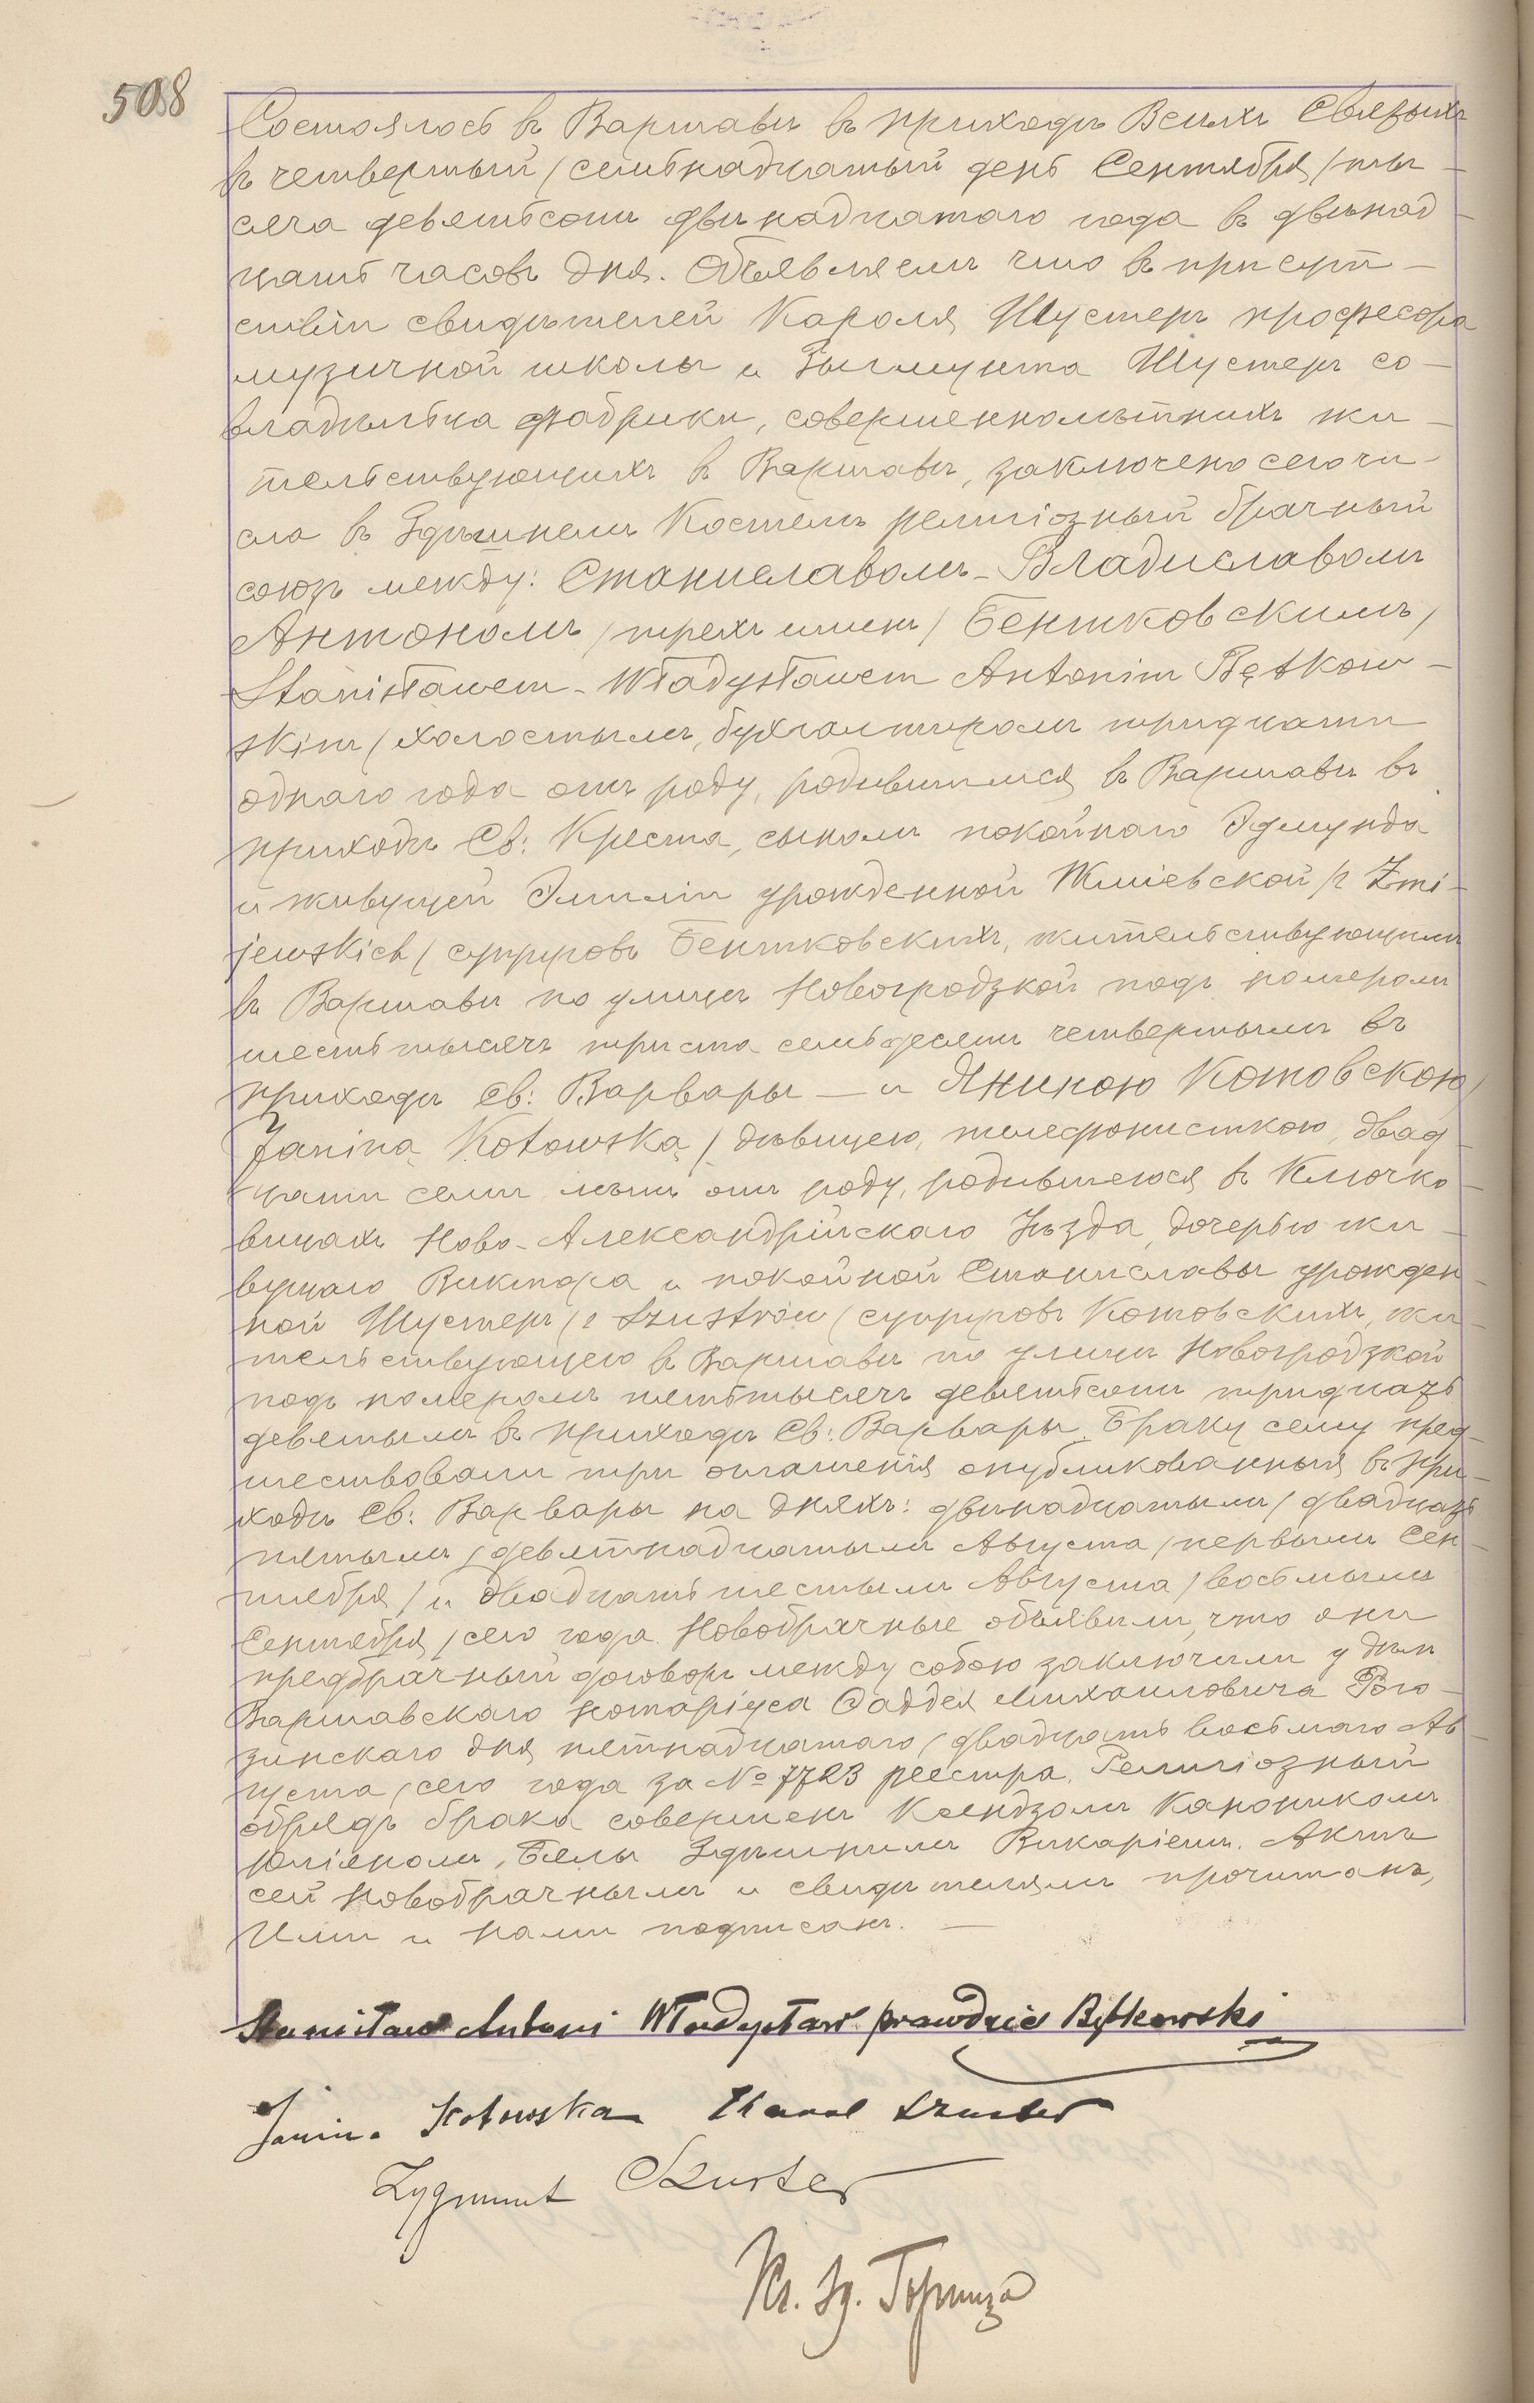 508
Состоялось въ Варшавѣ въ приходѣ Всѣхъ Святыхъ
въ четвертый /семнадцатый день Сентября/ ты-
сяча девятьсотъ двѣнадцатаго года въ двѣнад-
цать часовъ дня. Объявляемъ что въ присут-
ствіи свидѣтелей Кароля Шустеръ професора
музичной школы и Зыгмунта Шустеръ со-
владѣльца фабрики, совершеннолѣтнихъ жи-
тельствующихъ въ Варшавѣ, заключено сего чи-
сла въ здѣшнемъ Костелѣ религіозный брачный
союзъ между: Станиславомъ-Владиславомъ
Антономъ /трехъ именъ/ Бентковскимъ /
Stanisławem-Władysławem Antonim Bętkow-
skim/ холостымъ, бухгалтеромъ тридцати
одного года отъ роду, родившимся въ Варшавѣ въ
приходѣ Св: Креста, сыномъ покойнаго Эдмунда
и живущей Эмиліи урожденной Жміевской /z Żmi-
jewskich/ супруговъ Бентковскихъ, жительствующимъ
въ Варшавѣ по улицѣ Новогродзкой подъ номеромъ
шесть тысячъ триста семьдесятъ четвертымъ въ
приходѣ Св: Варвары — и Яниною Котовскою/
Janiną Kotowską / дѣвицею, телефонисткою, двад-
цати семи лѣтъ отъ роду, родившеюся въ Клочко-
вицахъ Ново-Александрійскаго Уѣзда, дочерью жи-
вущаго Виктора и покойной Станиславы урожден-
ной Шустеръ /z Szustrów/ супруговъ Котовскихъ, жи-
тельствующею въ Варшавѣ по улицѣ Новогродзкой
подъ номеромъ пять тысячъ девятьсотъ тридцать
девятымъ въ приходѣ Св: Варвары. Браку сему пред-
шествовали три оглашенія опубликованныя въ при-
ходѣ Св: Варвары на дняхъ: двѣнадцатымъ / двадцать
пятымъ / девятнадцатымъ Августа / первымъ Сен-
тября / и двадцать шестымъ Августа / восьмымъ
Сентября / сего года. Новобрачные объявили, что они
предбрачный договоръ между собою заключили у дѣлъ
Варшавскаго Нотаріуса Фаддея Михаиловича
зинскаго дня пятнадцатаго / двадцать восьмаго Ав-
густа / сего года за № 7723 реестра. Религіозный
обрядъ брака совершенъ Ксендзомъ Каноникомъ
Юліяномъ, Бялы Здѣшнимъ Викаріемъ. Актъ
сей Новобрачнымъ и свидѣтелямъ прочитанъ,
Ими и нами подписанъ. —
Stanisław Antoni Władysław prawdzic Bętkowski
Janina Kotowska Karol Szuster
Zygmunt Szuster